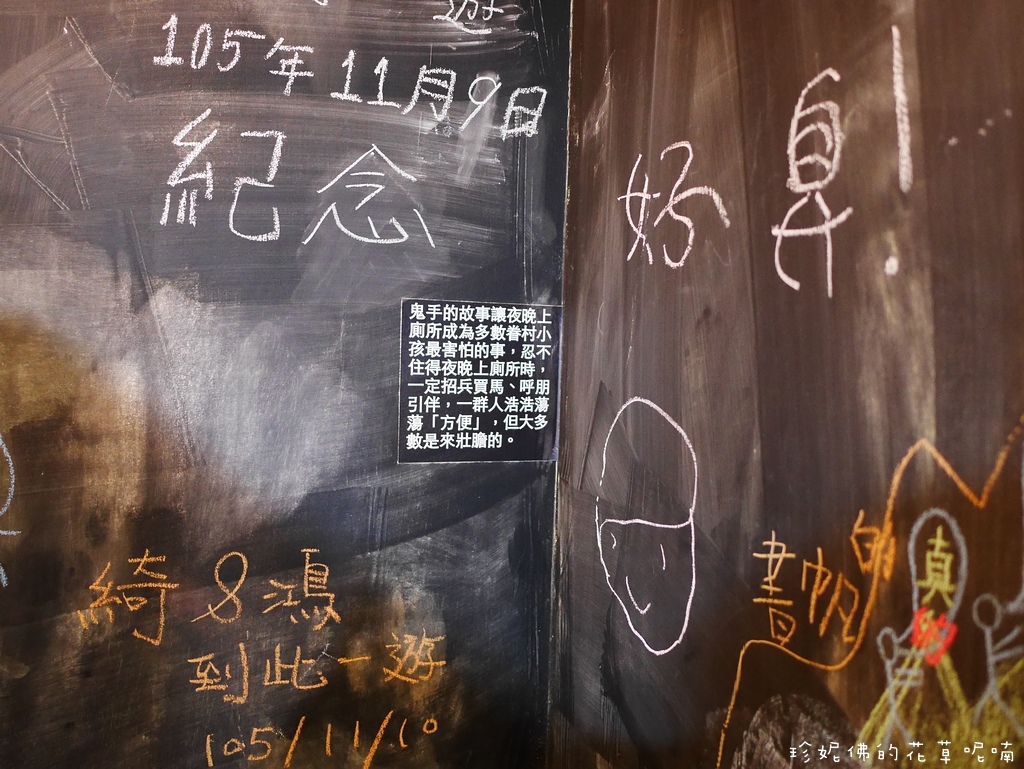 遊
105年11月9日
紀念
好真！
鬼手的故事讓夜晚上
廁所成為多數眷村小
孩最害怕的事，忍不
住得夜晚上廁所時，
一定招兵買馬、呼朋
引伴，一群人浩浩蕩
蕩「方便」，但大多
數是來壯膽的。
綺&鴻
到此一遊
105/11/10
書帆的
真的
珍妮佛的花草呢喃